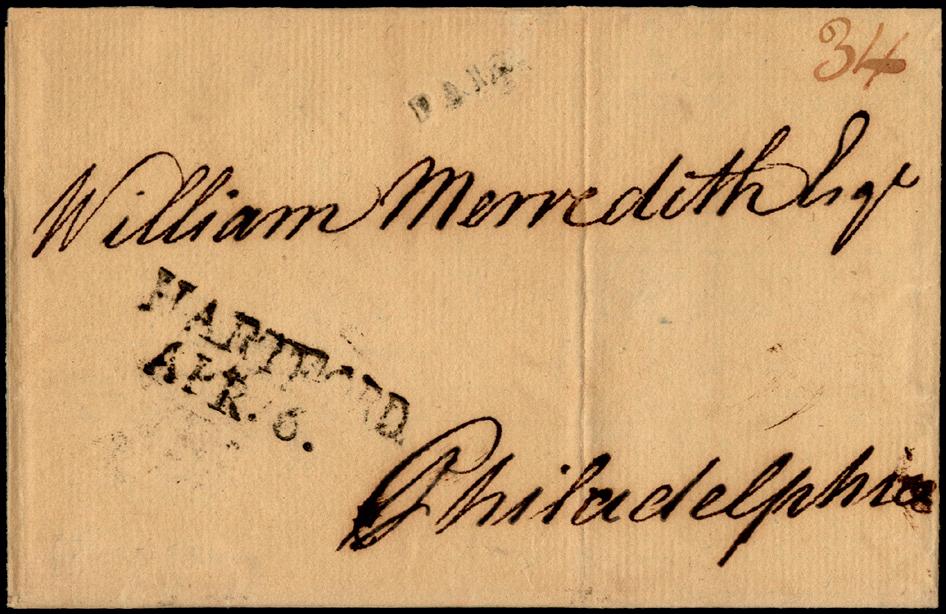 34
PAID.
William Merredith Esqr
HARTFORD
APR. 6.
Philadelphia